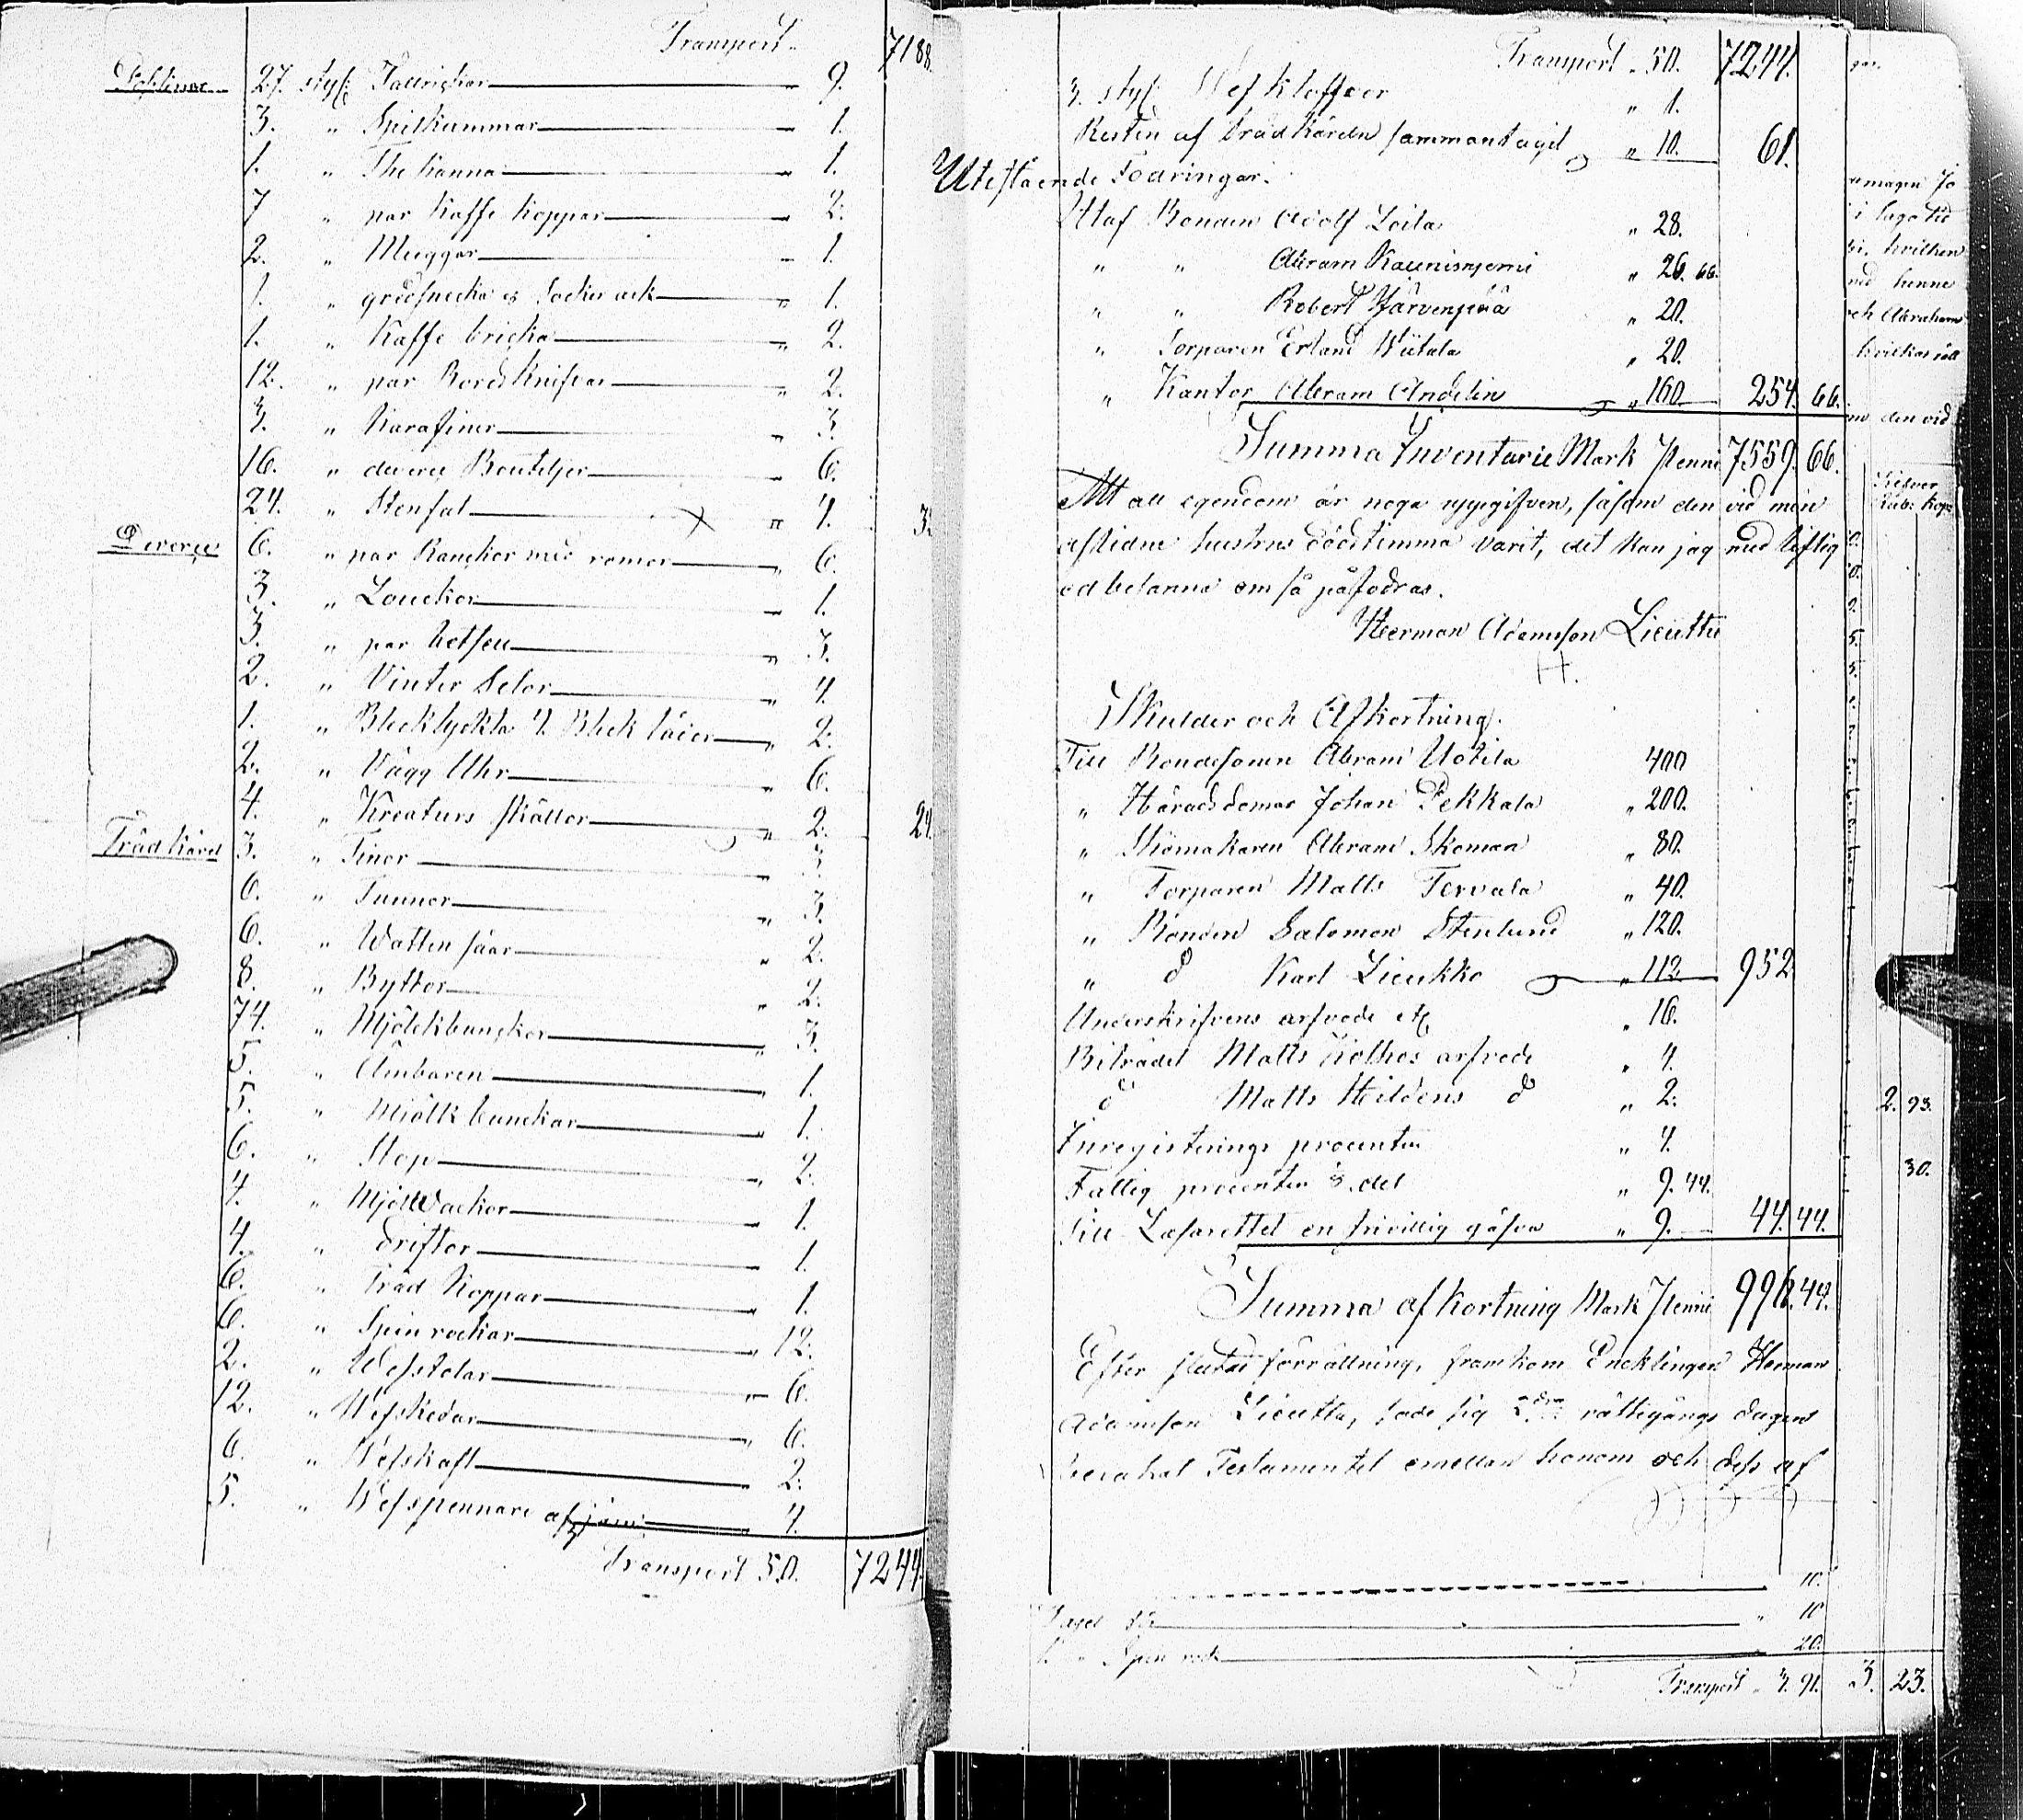 Transport „ 7188.
27. styc: Tallrickar 9.
3. „ Spilkummar „ 1.
1. „ The kanna „ 1.
7 „ par Kaffe koppar „ 2.
2. „ Muggar „ 1.
1. „ gredsnecka o Socker ask „ 1.
1. „ Kaffe bricka „ 2.
12. „ par Bords Knifvar „ 2.
3. „ Karafiner „ 3.
16. „ diverse Bouteljer „ 6.
24. „ Stenfat „ 4. 3
Diverse 6. „ par Ranckor med remor „ 6.
3. „ Lanckor „ 1.
3. „ par betsel „ 3.
2. „ Vinter Selor „ 4.
1. „ Blecklyckta 4. Bleck „ 2.
2. „ Vägg Uhr „ 6.
4. „ Kreaturs skällor „ 2. 24.
Trädkäril 3. „ Tinor „ 3.
6. „ Tunnor „ 3.
6. „ Watten såar „ 2.
8. „ Byttor „ 2.
74. „ Mjölckbunckor „ 3.
5. „ Ämbaren „ 1.
5. „ Mjölk bunckar „ 1.
6. „ Stop „ 2.
4. „ Mjöl Wackor „ 1.
4. „ Driftor „ 1.
6. „ Träd Koppar „ 1.
6. „ Spin rockar „ 12.
2. „ Wefstolar „ 6.
12. „ Wefskedar „ 6.
6. „ Wefskaft „ 2.
5. „ Wefspennare af järn „ 4.
Transport 50. 7244.
Transport „ 50. 7244.
3. styc: Wef kloffvor „ 1.
Resten af trädkäriln sammantagit „ 10. 61.
Utestående Fodringar.
Utaf Bonden Adolf Loila „ 28.
„ „ Abram Kaunisnjemi „ 26. 66.
„ „ Robert Yjärvenpää „ 20.
„ Torparen Erland Wiitala „ 20.
„ Kantor Abram Andelin „ 160 254. 66.
Summa Inventarie Mark Penni 7559. 66.
Att all egendom är noga uppgifven, såsom den vid min
aflidne hustrus dödstimma varit, det kan jag med liflig
ed besanna om så påfodras.
Herman Adamson Lieutta
H.
Skulder och Afkortning.
Till Bondesonen Abram Uotila 400
„ Häradsdomar Johan Pekkala „ 200.
„ Skomakaren Abram Skoman „ 80.
„ Torparen Matts Tervala „ 40.
„ Bonden Salomon Stenlund „ 120.
„ d Karl Lieukko „ 112 952
Underskrifvens arfvode etc „ 16.
Biträdet Matts Kolkos arfvode „ 4.
d Matts Heildens d „ 2.
Inregisterings procenten „ 4.
Fattig procenten ⅛ del „ 9. 44.
Till Lasarettet en frivillig gåfva „ 9. 44. 44.
Summa afkortning Mark Penni 996. 44.
Efter slutad förrättning, framkom Encklingen Herman
Adamson Lieutta, sade sig 2dra rättegångs dagen
bevakat Testamentet emellan honom och dess af
10.
10
„ Spin rock 20.
Transport „ 3. 91. 3. 23.
i laga tid
hvilken
med henne
och Abraham
den vid
2. 93.
30.